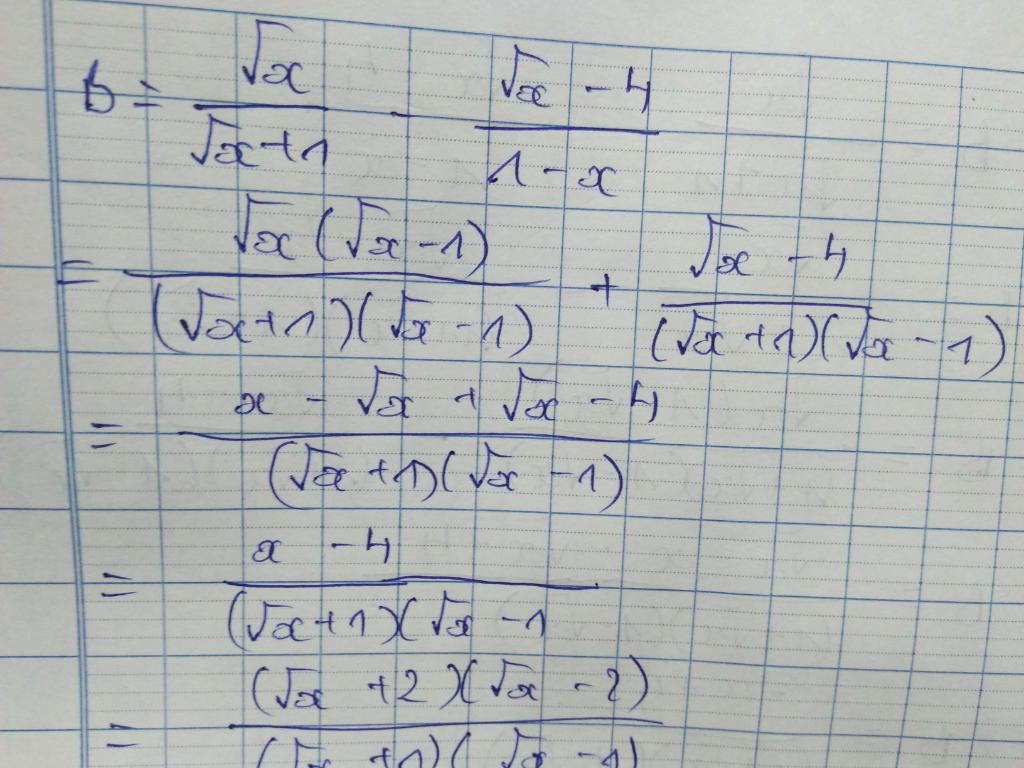 B = √x / (√x+1) - (√x - 4) / (1 - x)
= √x(√x - 1) / (√x+1)(√x - 1) + (√x - 4) / (√x+1)(√x - 1)
= (x - √x + √x - 4) / (√x+1)(√x - 1)
= (x - 4) / (√x+1)(√x - 1
= (√x +2)(√x - 2) / (√x +1)(√x - 1)